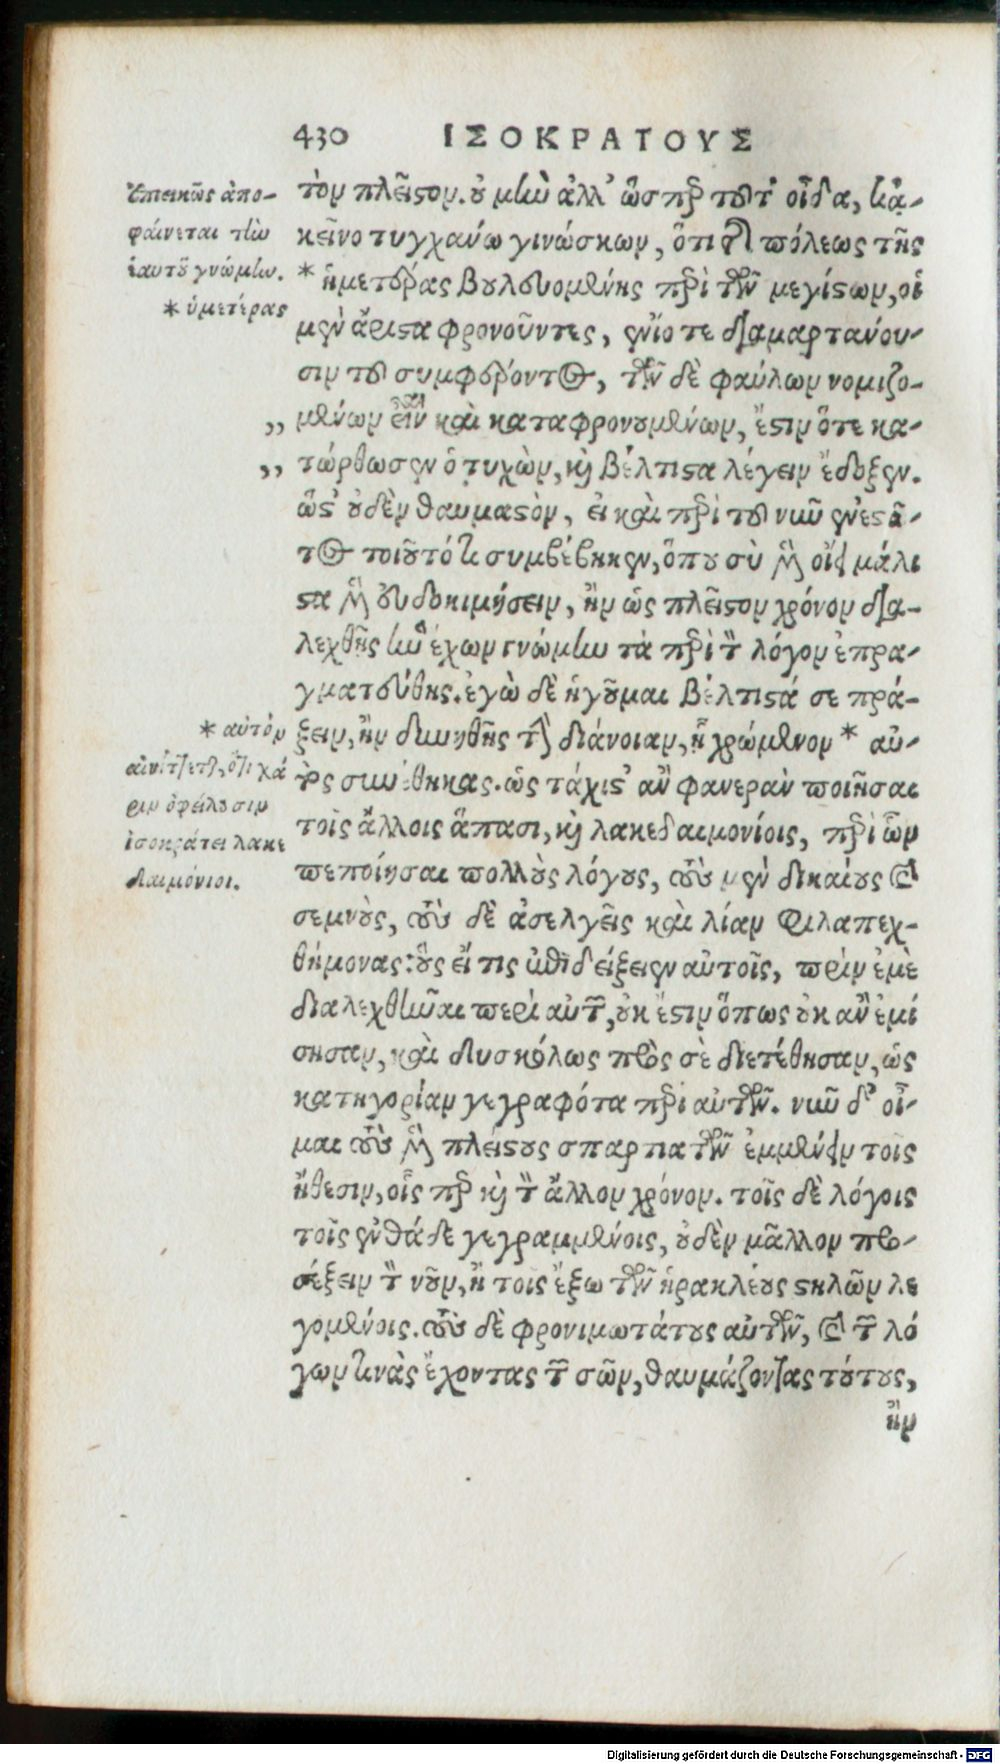 430 ΙΣΟΚΡΑΤΟΥΣ
ἐπιεικῶς ἀπο-
φαίνεται τὴν
ἑαυτοῦ γνώμην.
* ὑμετέρας
τὸν πλεῖστον. οὐ μὴν ἀλλ' ὥσπερ τοῦτ' οἶδα, κἀ-
κεῖνο τυγχάνω γινώσκων, ὅτι τῆς πόλεως τῆς
* ἡμετέρας βουλευομένης περὶ τῶν μεγίστων, οἱ
μὲν ἄριστα φρονοῦντες, ἐνίοτε διαμαρτάνου-
σιν τοῦ συμφέροντος, τῶν δὲ φαύλων νομιζο-
„ μένων εἶναι καὶ καταφρονουμένων, ἔστιν ὅτε κα-
„ τώρθωσεν ὁ τυχὼν, καὶ βέλτιστα λέγειν ἔδοξεν.
ὥστ' οὐδὲν θαυμαστὸν, εἰ καὶ περὶ τοῦ νῦν ἐνεστῶ-
τος τοιοῦτό τι συμβέβηκεν, ὅπου σὺ μὲν οἴει μάλι
στα μὲν εὐδοκιμήσειν, ἢν ὡς πλεῖστον χρόνον δια-
λεχθῇς ἣν ἔχων γνώμην τὰ περὶ τὸν λόγον ἐπρα-
γματεύθης. ἐγὼ δὲ ἡγοῦμαι βέλτιστά σε πρά-
ξειν, ἢν δυνηθῇς τὴν διάνοιαν, ᾗ χρώμενον * αὐ-
τοὺς συνέθηκας. ὡς τάχιστ' ἂν φανερὰν ποιῆσαι
τοῖς ἄλλοις ἅπασι, καὶ λακεδαιμονίοις, περὶ ὧν
πεποίησαι πολλοὺς λόγους, τοὺς μὲν δικαίους καὶ
σεμνοὺς, τοὺς δὲ ἀσελγεῖς καὶ λίαν φιλαπεχ-
θήμονας: οὓς εἴ τις ἐπέδειξεν αὐτοῖς, πρὶν ἐμὲ
διαλεχθῆναι περὶ αὐτῶν, οὐκ ἔστιν ὅπως οὐκ ἂν ἐμί
σησαν, καὶ δυσκόλως πρὸς σὲ διετέθησαν, ὡς
κατηγορίαν γεγραφότα περὶ αὐτῶν. νῦν δ' οἶ-
μαι τοὺς μὲν πλείστους σπαρτιατῶν ἐμμένειν τοῖς
ἤθεσιν, οἷς περ καὶ τὸν ἄλλον χρόνον. τοῖς δὲ λόγοις
τοῖς ἐνθάδε γεγραμμένοις, οὐδὲν μᾶλλον προ-
σέξειν τὸν νοῦν, ἢ τοῖς ἔξω τῶν ἡρακλέους στηλῶν λε
γομένοις. τοὺς δὲ φρονιμωτάτους αὐτῶν, καὶ τῶν λό
γων τινὰς ἔχοντας τῶν σῶν, θαυμάζοντας τούτους,
ἢν
* αὐτὸν
αἰνίττεται, ὅτι χά
ριν ὀφείλουσιν
ἰσοκράτει λακε
δαιμόνιοι.
Digitalisierung gefördert durch die Deutsche Forschungsgemeinschaft - DFG